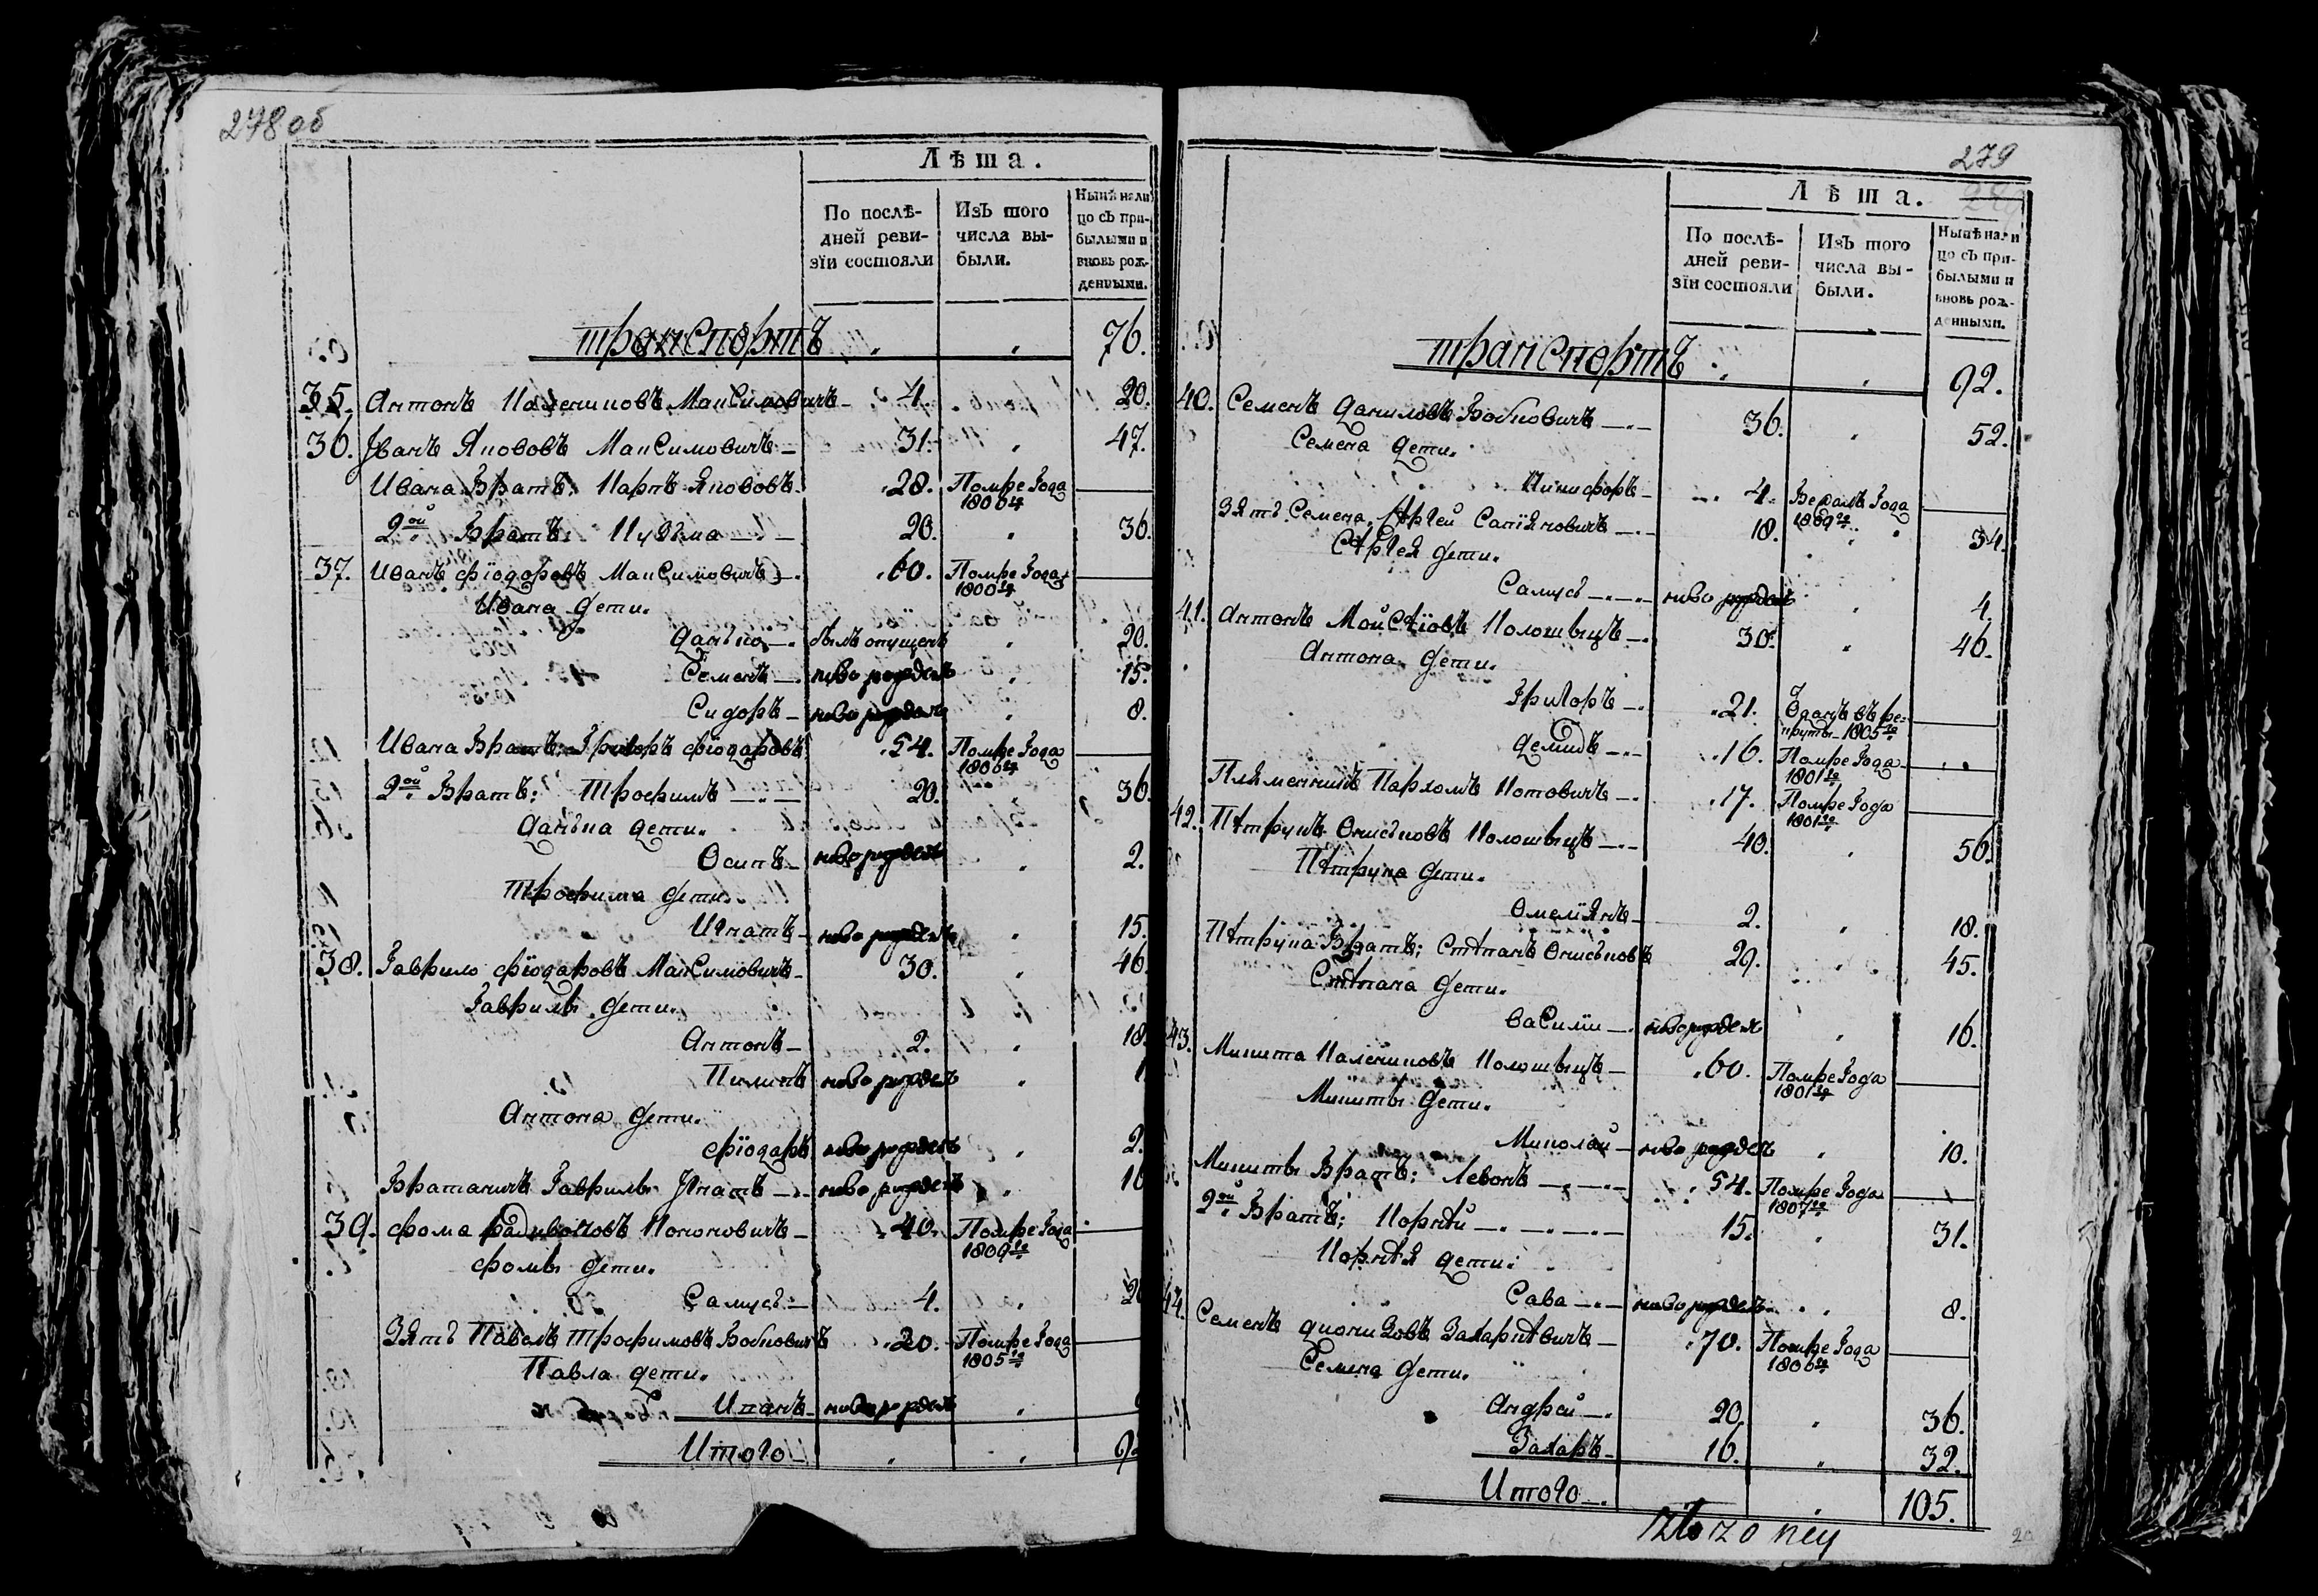 278 об
Лѣта.
По послѣ-
дней реви-
зіи состояли
Изъ того
числа вы-
были.
Нынѣ нали
цо съ при-
былыми и
вновь рож-
денными.
транспортъ " " 76.
35. Антонъ Калениковъ Максимовичъ 4. " 20.
36. Иванъ Якововъ Максимовичъ 31. " 47.
Ивана Братъ: Карпъ Якововъ 28. Помре Года
1806го
2ой Братъ: Кузьма 20. " 36.
37. Иванъ Фіодоровъ Максимовичъ 60. Помре Года
1800го
Ивана дети.
Данько былъ опущенъ " 20.
Семенъ ново рожденъ " 15.
Сидоръ ново рожденъ " 8.
Ивана Братъ: Григоръ Фіодоровъ 54. Помре Года
1806го
2ой Братъ: Трофимъ 20. " 36.
Данька дети.
Осипъ ново рожденъ " 2.
Трофима дети.
Игнатъ ново рожденъ " 15.
38. Гаврило Фіодоровъ Максимовичъ 30. " 46.
Гаврилы дети.
Антонъ 2. " 18.
Пилипъ ново рожденъ " 1
Антона дети.
Фіодоръ ново рожденъ " 2.
Братаничъ Гаврилы Игнатъ ново рожденъ " 16
39. Фома Радивоновъ Кононовичъ 40. Помре Года
1809го
Фомы дети.
Самусь 4. " 20
Зять Павелъ Трофимовъ Бобковичъ 20. Помре Года
1805го
Павла дети.
ново рожденъ "
Итого " " 92
279
Лѣта.
По послѣ-
дней реви-
зіи состояли
Изъ того
числа вы-
были.
Нынѣ нали
цо съ при-
былыми и
вновь рож-
денными.
транспортъ " " 92.
40. Семенъ Даниловъ Бобковичъ 36. " 52.
Семена дети.
Никифоръ 4. Бежалъ Года
1809го
Зять Семена 18. " 34.
дети.
Самусь ново рожденъ " 4.
41. Антонъ Мойсеіовъ Колошвицъ 30. " 46.
Антона дети.
Григоръ 21. Отданъ въ ре-
круты 1805го
Демидъ 16. Помре Года
1801го
Племенникъ Пархомъ Котовичъ 17. Помре Года
1801го
42. Петрукъ Онисковъ Колошвицъ 40. " 56.
Петрука дети.
Омеліянъ 2. " 18.
Петрука Братъ: Степанъ Онисковъ 29. " 45.
Степана дети.
Василіи ново рожденъ " 16.
43. Микита Калениковъ Колошвицъ 60. Помре Года
1801го
Микиты дети.
Миколай ново рожденъ " 10.
Микиты Братъ: Левонъ 54. Помре Года
1807го
2ой Братъ: Корней 15. " 31.
Корнея дети:
Сава ново рожденъ " 8.
44. Семенъ Захаревичъ 70. Помре Года
1806го
Семена дети.
Андрей 20. " 36.
Захаръ 16. " 32.
Итого " 105.